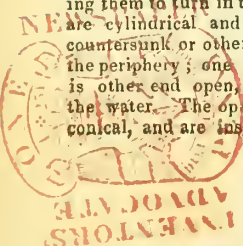 ing them to turn in t
are cylindrical and
countersunk or other
the periphery; one
is other end open,
the water. The op
conical, and are ins
NEWS
ONE
ADVOCATE
INVENTORS